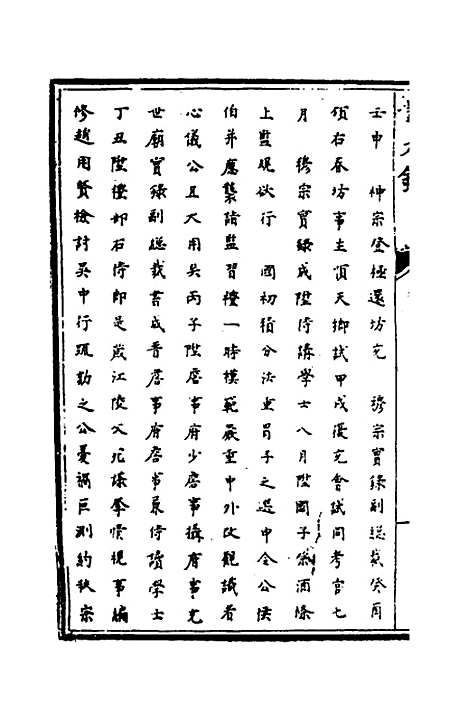 壬申　神宗登極還坊充　穆宗實錄副總裁癸酉
領右春坊事主順天鄉試甲戌復充會試同考官七
月　穆宗實錄成陞侍講學士八月陞國子祭酒條
上監規欲行　國初積分法重冒子之選中令公侯
伯并應襲詣監習禮一時模範嚴重中外改觀識者
心儀公且大用矣丙子陞詹事府少詹事攝府事充
世廟實錄副總裁書成晉詹事府詹事兼侍讀學士
丁丑陞禮部右侍郎是歲江陵父死議奪情視事編
修趙用賢檢討吳中行疏劾之公憂禍叵測約秩宗